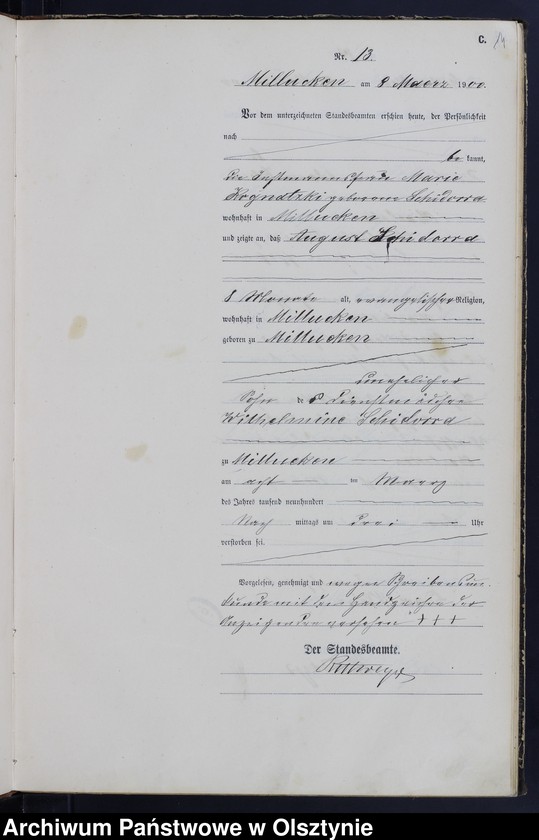 C.
14
Nr. 13.
Millucken am 8 Maerz 1900.
Vor dem unterzeichneten Standesbeamten erschien heute, der Persönlichkeit
nach
be kannt,
die Instmannsfrau Marie
geborene Schidorra
wohnhaft in Millucken
und zeigte an, daß August Schidorra
8 Monate alt, evangelischer Religion,
wohnhaft in Millucken
geboren zu Millucken
unehelicher
Sohn der Dienstmädchen
Wilhelmine Schidorra
zu Millucken
am acht ten Maerz
des Jahres tausend neunhundert
Nach mittags um drei Uhr
verstorben sei.
Vorgelesen, genehmigt und wegen Schreibensun-
kunde mit dem Handzeichen der
Anzeigenden versehen + + +
Der Standesbeamte.
Archiwum Państwowe w Olsztynie